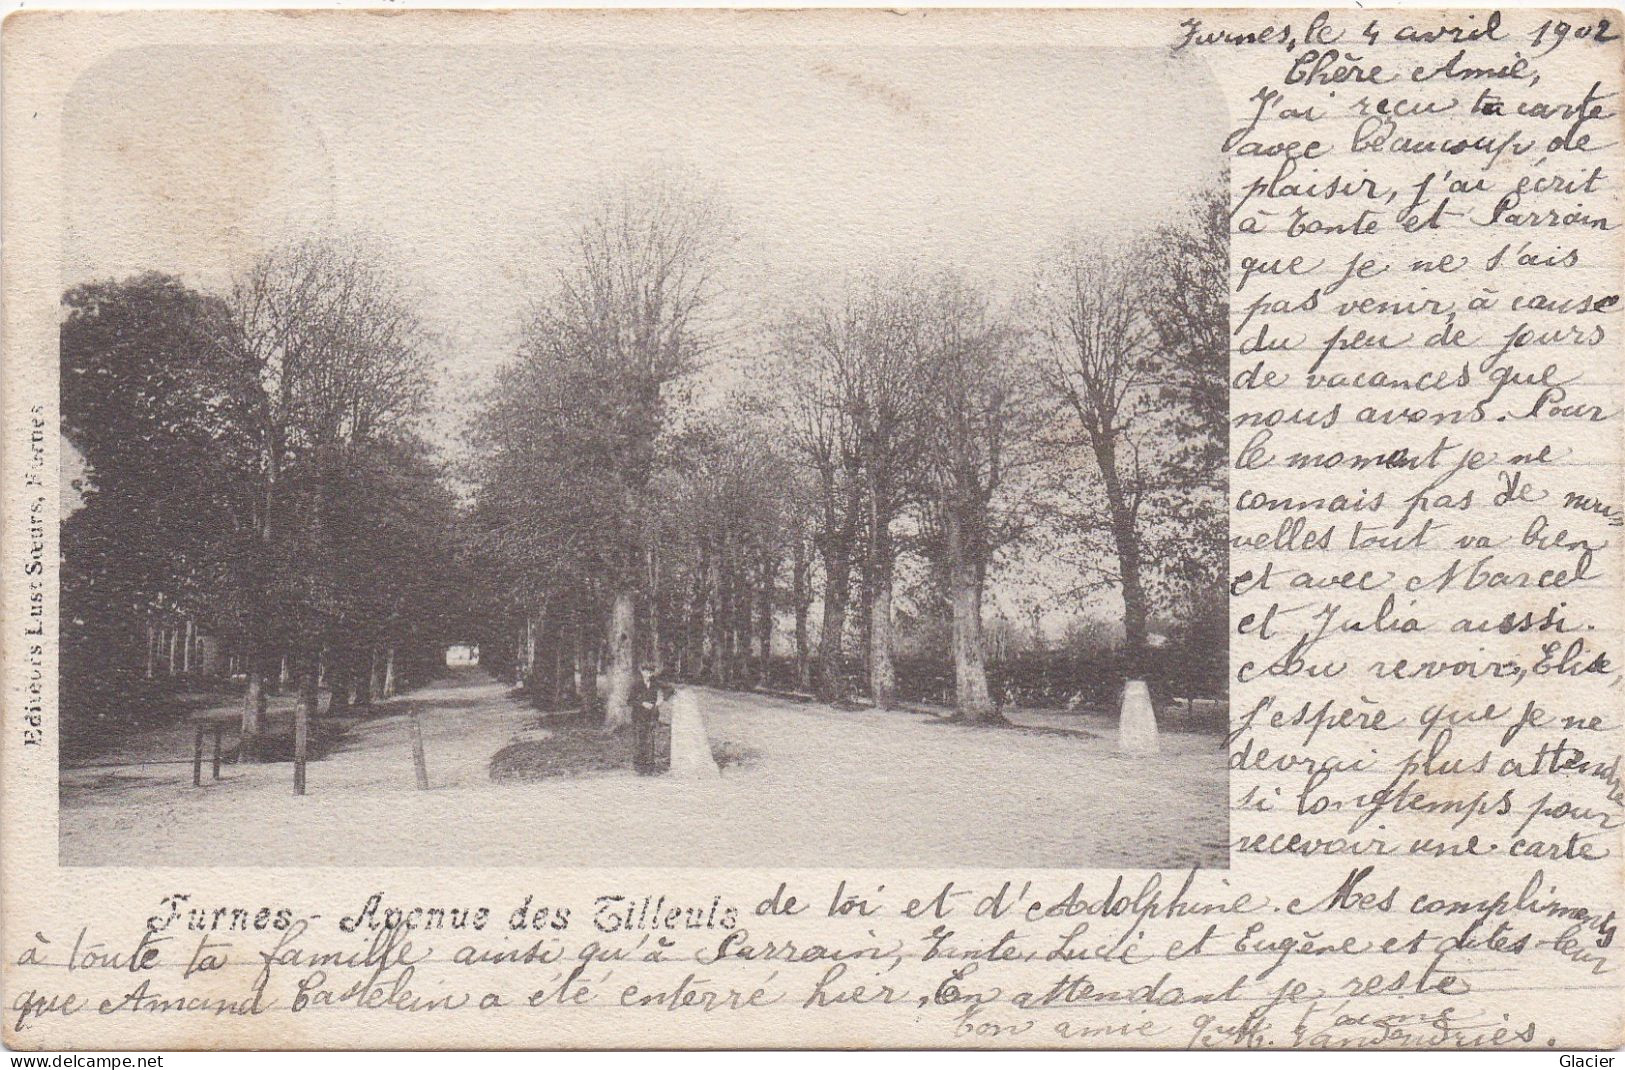 Furnes, le 4 avril 1902
Chère Amie,
J'ai reçu ta carte
avec beaucoup de
plaisir, j'ai écrit
à Tante et Parrain
que je ne s'ais
pas venir, à cause
du peu de jours
de vacances que
nous avons. Pour
le moment je ne
connais pas de nou-
velles tout va bien
et avec Marcel
et Julia aussi.
Au revoir, Elise,
j'espère que je ne
devrai plus attendre
si longtemps pour
recevoir une carte
de toi et d'Adolphine. Mes compliments
à toute ta famille ainsi qu'à Parrain, Tante, Lucie et Eugène et dites-leur
que Amand Castelein a été enterré hier, En attendant je reste
Ton amie qui t'aime
M. Vandendries.
Furnes - Avenue des Tilleuls
Editeurs Lust Sœurs, Furnes
Glacier